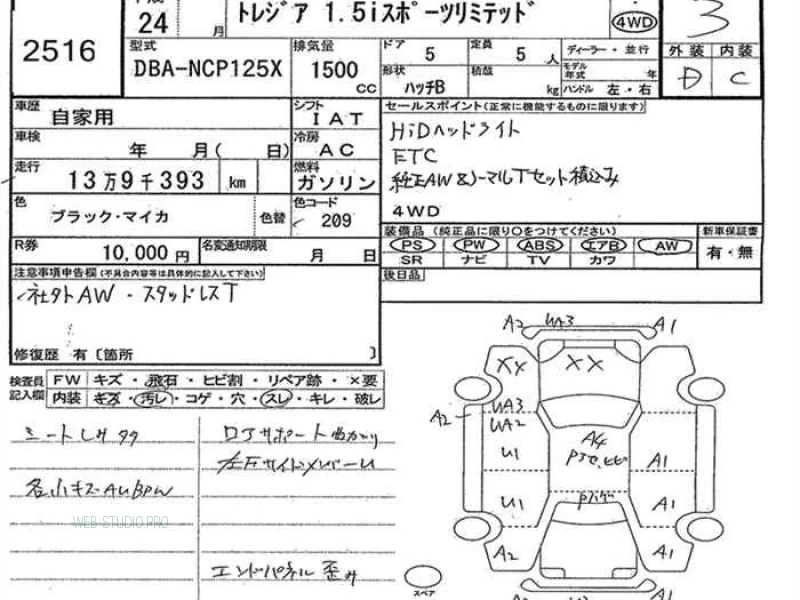 24 月 トレジア 1.5iスポーツリミテッド 4WD 3
2516
型式 DBA-NCP125X
排気量 1500 CC
ドア 5 定員 5 人 ディーラー・並行
形状 ハッチB 積載 kg モデル年式 年 ハンドル 左・右
外装 D 内装 C
車歴 自家用 シフト IAT
車検 年 月( 日) 冷房 AC
走行 13万9千393 km 燃料 ガソリン
色 ブラック・マイカ 色替 色コード 209
R券 10,000 円 名変通知期限 月 日
セールスポイント(正常に機能するものに限ります)
HiDヘッドライト
ETC
純正AW&ノーマルTセット積込み
4WD
装備品 (純正品に限り○をつけてください) 新車保証書
PS PW ABS エアB AW 有・無
SR ナビ TV カワ
後日品
注意事項申告欄(不具合内容等は具体的に記入して下さい)
社外AW・スタッドレスT
修復歴 有〔箇所 〕
検査員記入欄 FW キズ・飛石・ヒビ割・リペア跡・×要
内装 キズ・汚レ・コゲ・穴・スレ・キレ・破レ
WEB-STUDIO.PRO
エンドパネル歪み
A2 UA3 A1
XX XX
UA3
A2 UA2
U1 A4 A1
U1 A1
A2 A1
スペア
A2 A1